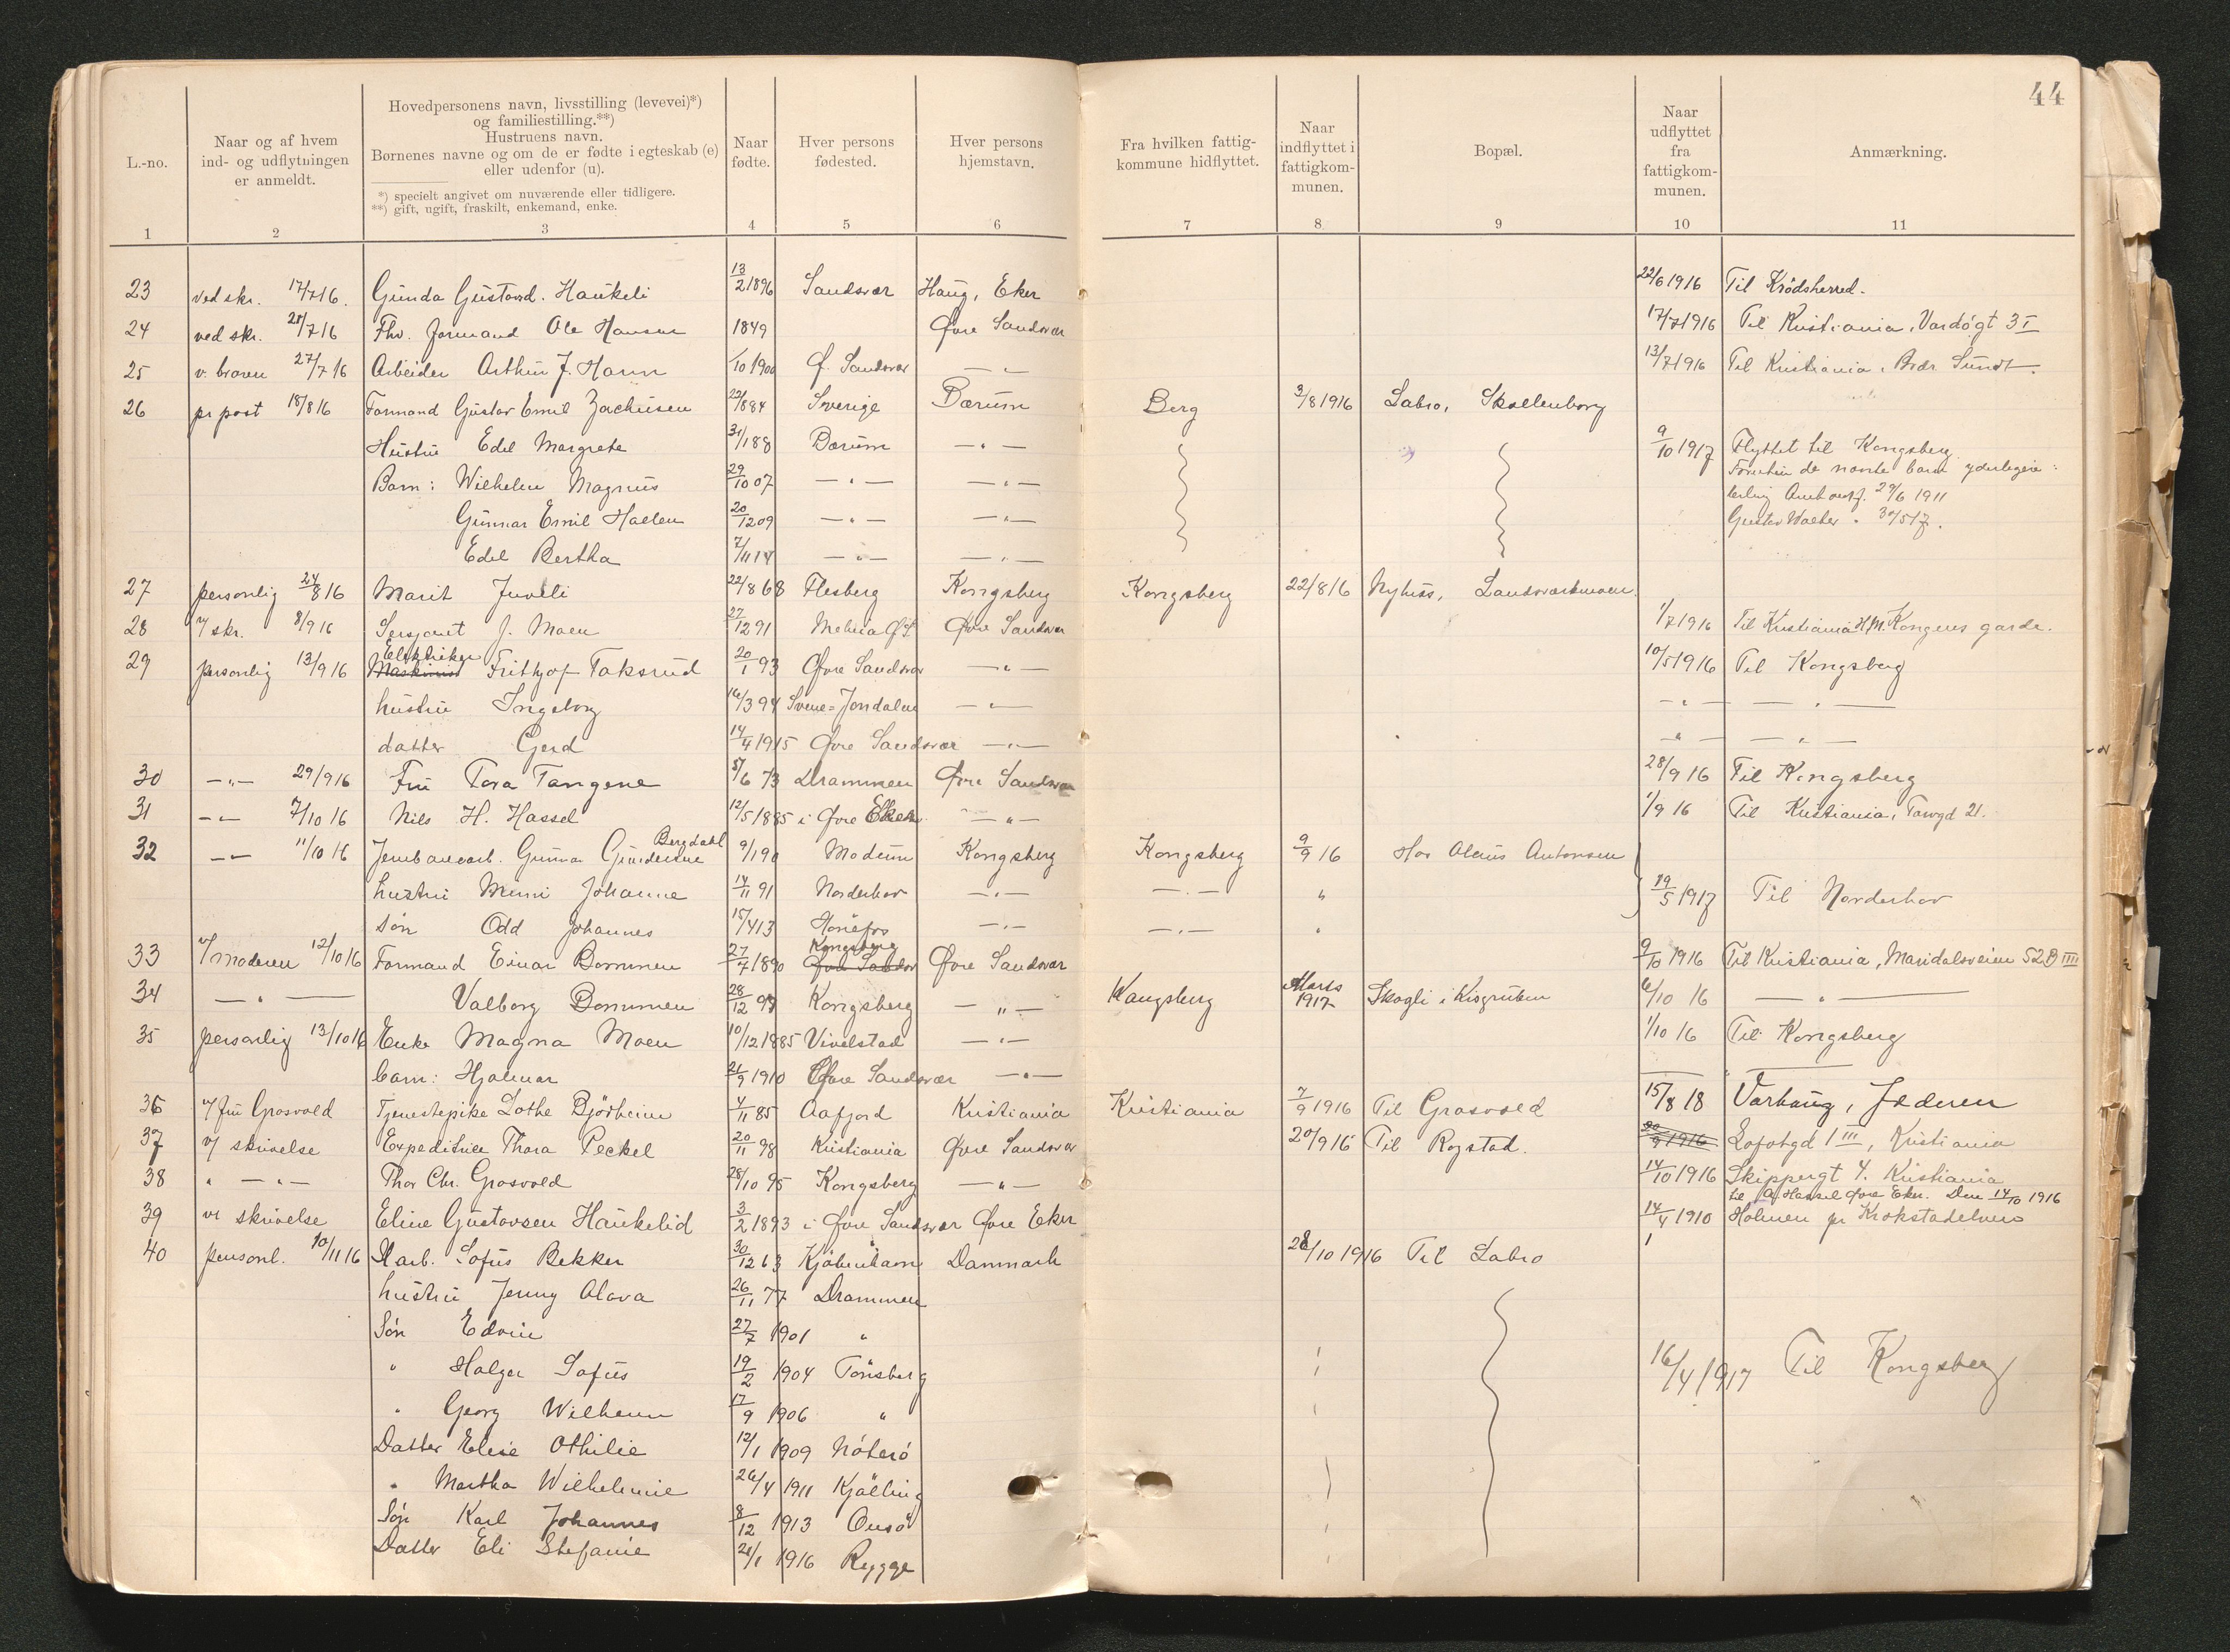 44
L.-no.
Naar og af hvem
ind- og udflytningen
er anmeldt.
Hovedpersonens navn, livsstilling (levevei)*)
og familiestilling.**)
Hustruens navn.
Børnenes navne og om de er fødte i egteskab (e)
eller udenfor (u).
*) specielt angivet om nuværende eller tidligere.
**) gift, ugift, fraskilt, enkemand, enke.
Naar
fødte.
Hver persons
fødested.
Hver persons
hjemstavn.
Fra hvilken fattig-
kommune hidflyttet.
Naar
indflyttet i
fattigkom-
munen.
Bopæl.
Naar
udflyttet
fra
fattigkom-
munen.
Anmærkning.
1 2 3 4 5 6 7 8 9 10 11
23 ved skr. 17/7 16. Gunda Gustavd. Haukeli 13/2 1896 Sandsvær Haug, Eker 22/6 1916 Til Krödsherred.
24 ved skr. 21/7 16 Fhv. formand Ole Hansen 1849 Øvre Sandsvær 17/7 1916 Til Kristiania, Vardögt 3 I
25 v. broren 27/7 16 Arbeider Arthur J. Hann /10 1900 Ø. Sandsvær — " — 13/7 1916 Til Kristiania, Brdr Sundt.
26 pr post 18/8 16 Formand Gustav Emil Zachrisen 22/8 84 Sverige Bærum Berg 3/8 1916 Labro, Skollenborg
Hustru Edel Margrete 31/1 88 Bærum — " — 9/10 1917 Flyttet til Kongsberg
Foruten de nævnte barn yderligere:
Barn: Wilhelm Magnus 29/10 07 — " — — " —
Erling 29/6 1911
Gunnar Emil 20/12 09 — " — — " — Gustav Walter " 30/5 17.
Edel Bertha 7/11 14 — " — — " —
27 personlig 24/8 16 Marit Juveli 22/8 68 Flesberg Kongsberg Kongsberg 22/8 16 Nyhus,
28 v/ skr. 8/9 16 Sersjant J. Moen 27/12 91 Øvre Sandsvær 1/7 1916 Til Kristiania H.M. Kongens garde.
Elektriker
29 personlig 13/9 16 Maskinist Frithjof Taksrud 20/1 93 Øvre Sandsvær — " — 10/5 1916 Til Kongsberg
hustru Ingeborg 16/3 94 Svene=Jondalen — " — — " — — " —
datter Gerd 14/4 1915 Øvre Sandsvær — " — — " — — " —
30 — " — 29/9 16 Fru Tora Tangene 5/6 73 Drammen Øvre Sandsvær 28/9 16 Til Kongsberg
31 — " — 7/10 16 Nils H. Hassel 12/5 1885 i Øvre Eker — " — 1/9 16 Til Kristiania, 21.
Bergdahl
32 — " — 11/10 16 Jernbanearb. Gunnar Gundersen 9/1 90 Modum Kongsberg Kongsberg 9/9 16 Hos Olaus Antonsen
hustru Mimi Johanne 14/11 91 Norderhov — " — — " — " 19/5 1917 Til Norderhov
søn Odd Johannes 15/4 13 Hönefos — " — — " — "
Kongsberg
33 v/ moderen 12/10 16 Formand Einar Bommen 27/4 1890 Øvre Sandsv Øvre Sandsvær 9/10 1916 Til Kristiania, Maridalsveien 52B IIII
34 — " — Valborg Bommen 28/12 97 Kongsberg — " — Kongsberg Marts 1917 Skogli i Kisgruben 6/10 16 — " —
35 personlig 13/10 16 Enke Magna Moen 10/12 1885 Vivelstad — " — 1/10 16 Til Kongsberg
barn: Hjalmar 21/9 1910 Øvre Sandsvær — " —
36 v/ fru Grosvold Tjenestepike Lothe Bjørheim 4/11 85 Aafjord Kristiania Kristiania 7/9 1916 Til Grosvold 15/8 18 Varhaug, Jæderen
37 v/ skrivelse Expeditrice Thora Peckel 20/11 98 Kristiania Øvre Sandsvær 20/9 16 Til Rogstad. 20/9 1916 Lofotgd 1 III, Kristiania
38 " — " — Thor Chr. Grosvold 28/10 95 Kongsberg — " — 14/10 1916 Skippergt 4. Kristiania
til A. Hassel Øvre Eker. Den 14/10 1916
39 vr skrivelse Eline Gustavsen Haukelid 3/2 1893 i Øvre Sandsvær Øvre Eker 14/4 1910 Holmen pr Krokstadelven
40 personl. 10/11 16 arb. Sofus Bekker 30/12 63 Kjøbenhavn Danmark 28/10 1916 Til Labro
hustru Jenny Olava 26/11 77 Drammen
Sön Edvin 27/7 1901 "
" Holger Sofus 19/2 1904 Tönsberg 16/4 1917 Til Kongsberg
" Georg Wilhelm 17/9 1906 "
Datter Elise Othilie 12/1 1909 Nöterö
" Martha Wilhelmine 26/4 1911 Kjölling
Sön Karl Johannes 8/12 1913 Onsö
Datter Eli Stefanie 21/1 1916 Rygge